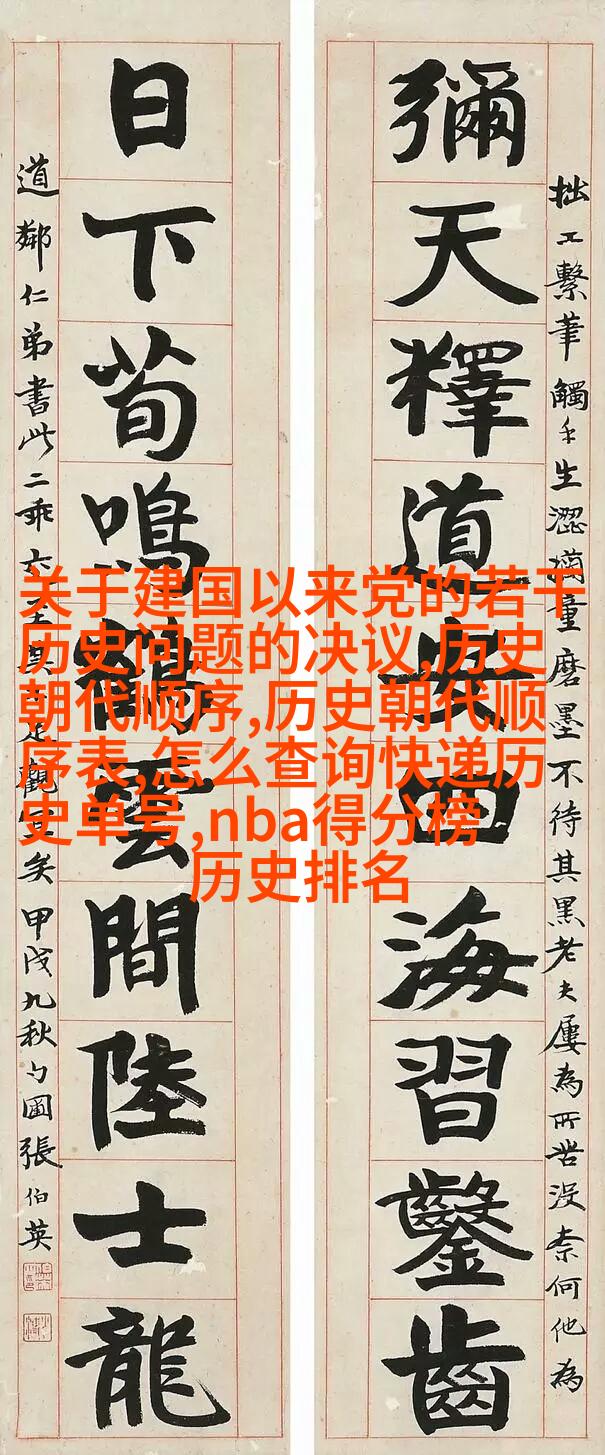 彌天釋道安四海習鑿齒
拙工繫筆觸手生澀童磨墨不待其黑老夫屢為所苦沒柰何他為
日下荀鳴鶴雲間陸士龍
道鄰仁弟書此二乖觀矣甲戌九秋勺圃張伯英
关于建国以来党的若干
历史问题的决议,历史
朝代顺序,历史朝代顺
序表,怎么查询快递历
史单号,nba得分榜
历史排名